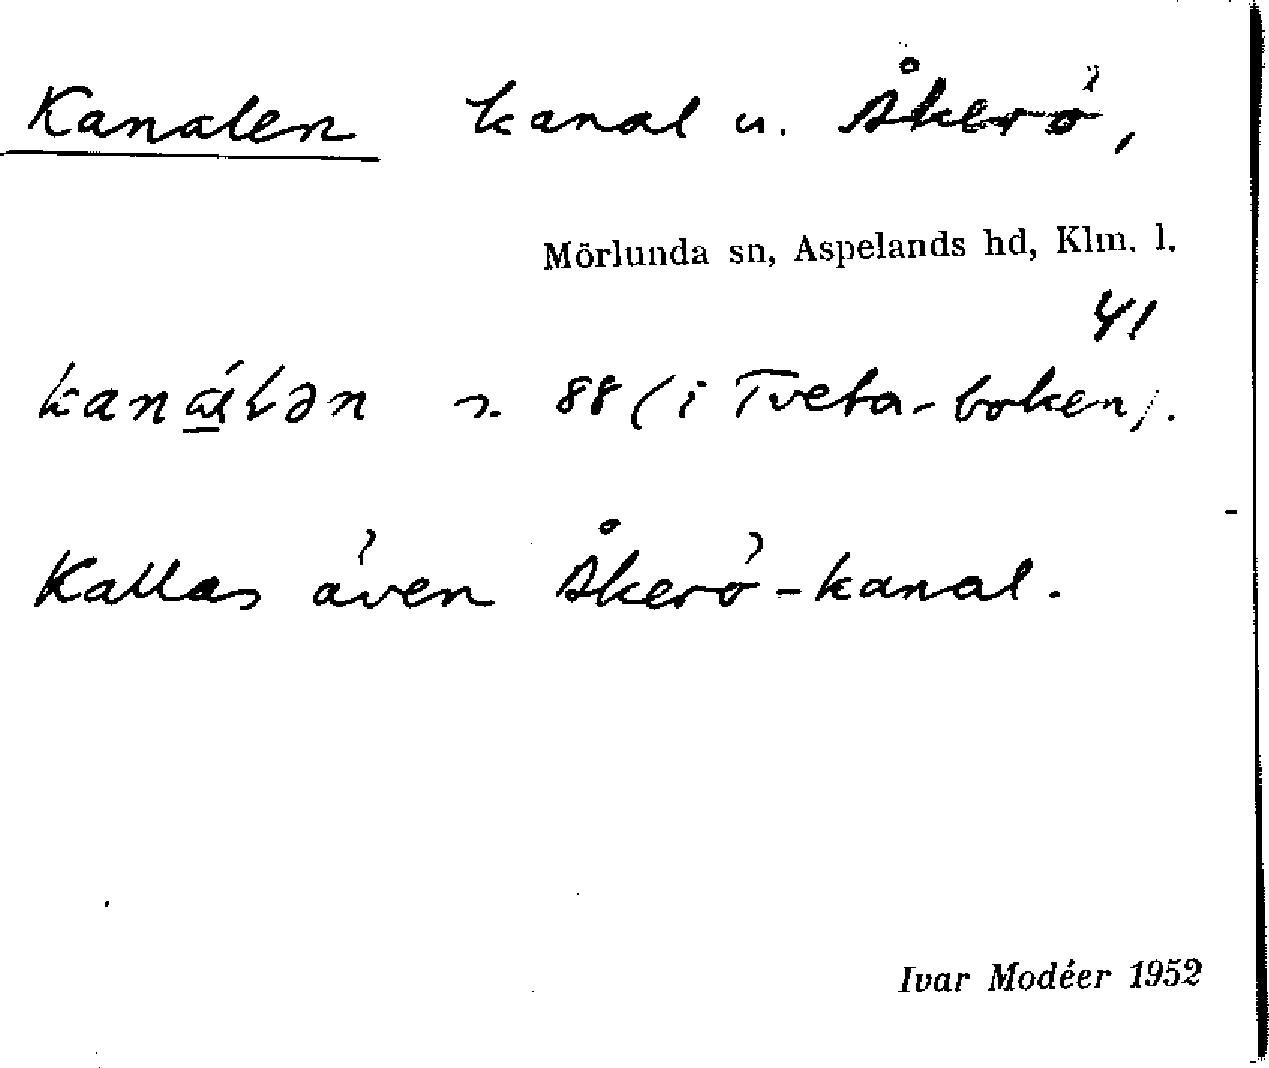 Kanalen kanal u. Åkerö,
Mörlunda sn, Aspelands hd, Klm. l.
41
88 (i Tveta-boken).
Kallas även Åkerö-kanal.
Ivar Modéer 1952